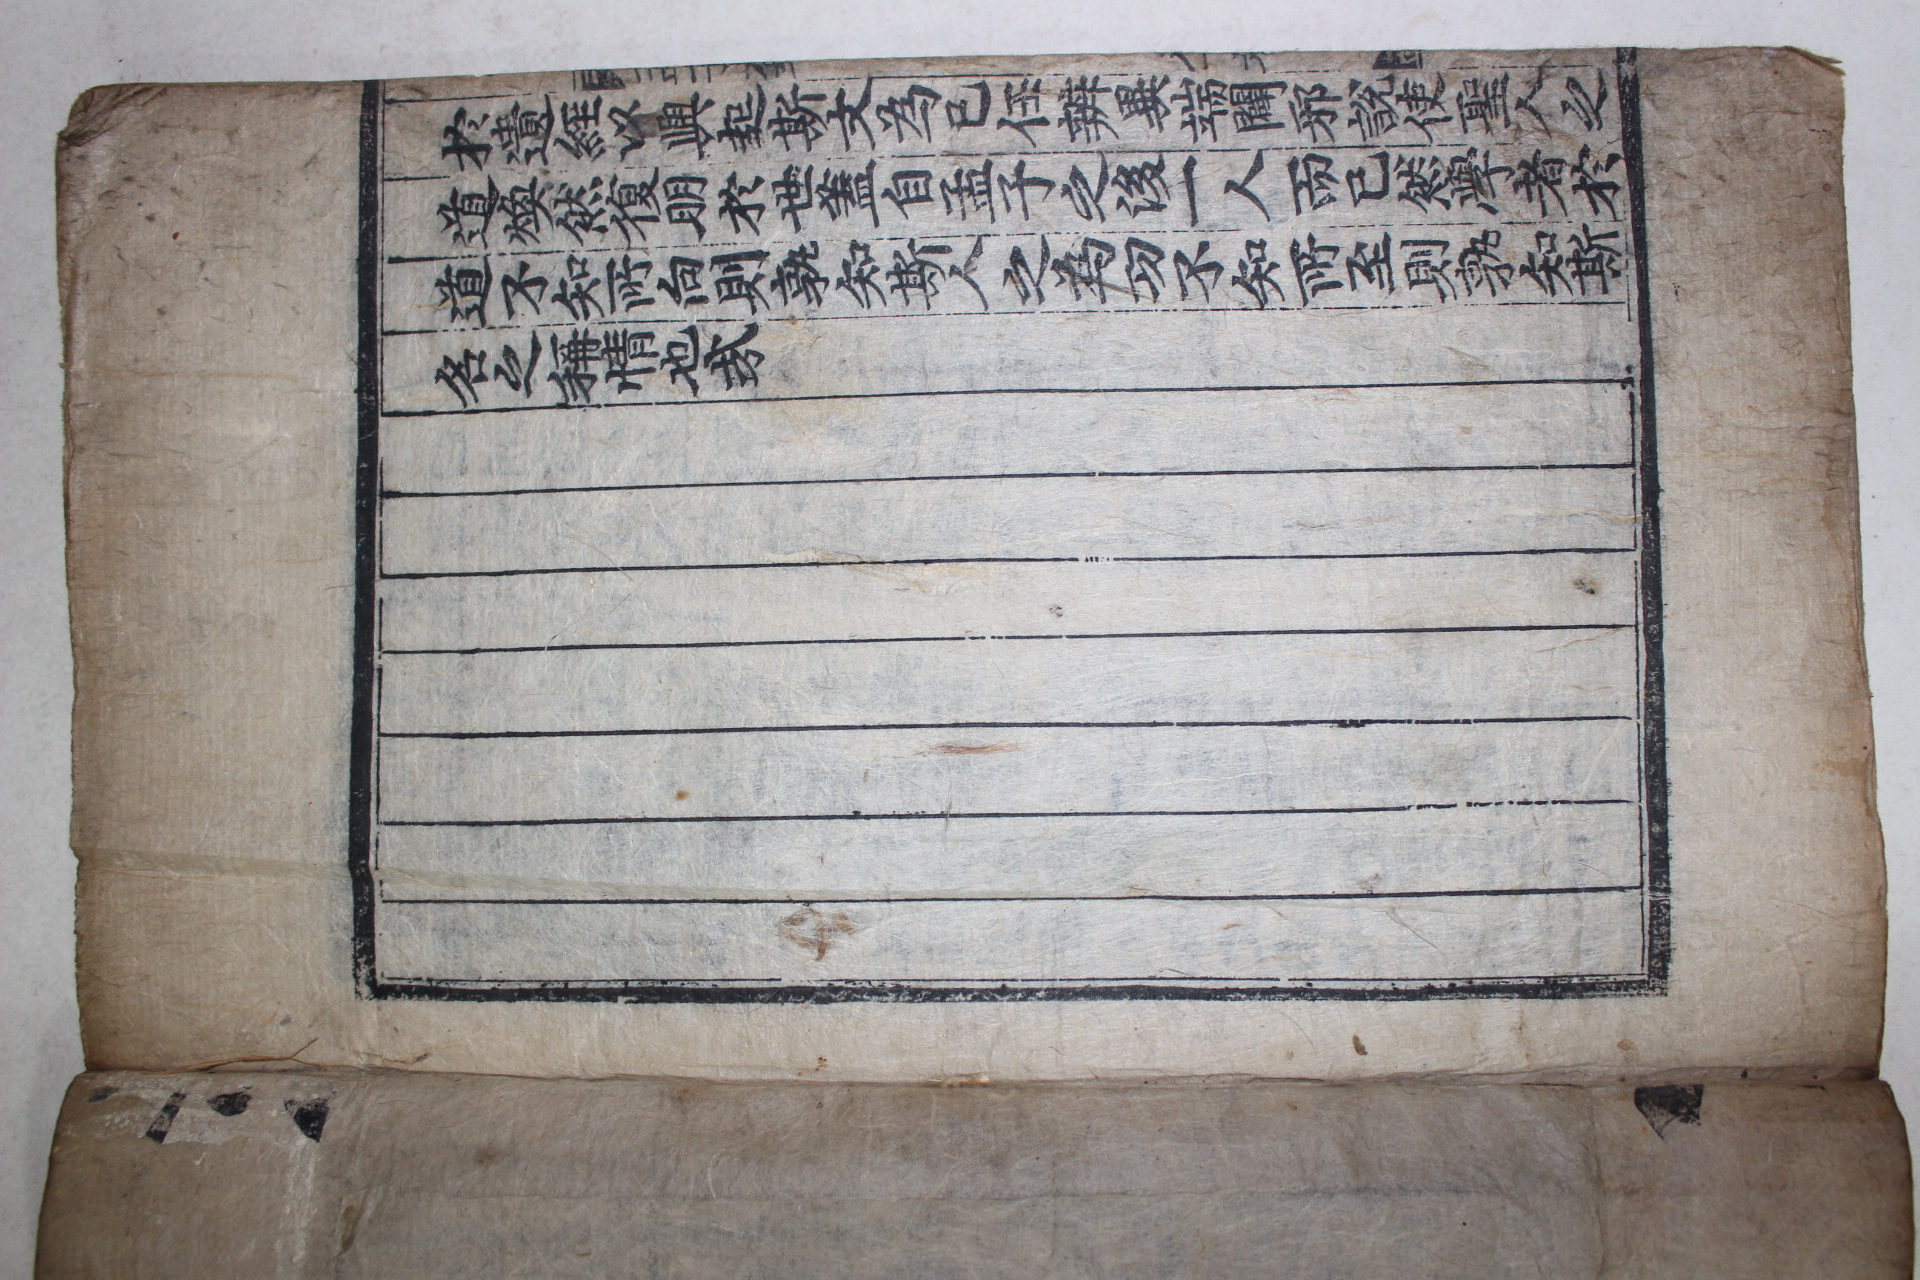 於遺經以興起斯文為己任辨異端闢邪說使聖人之
道煥然復明於世盖自孟子之後一人而已然學者於
道不知所向則孰知斯人之為功不知所至則孰知斯
名之稱情也哉